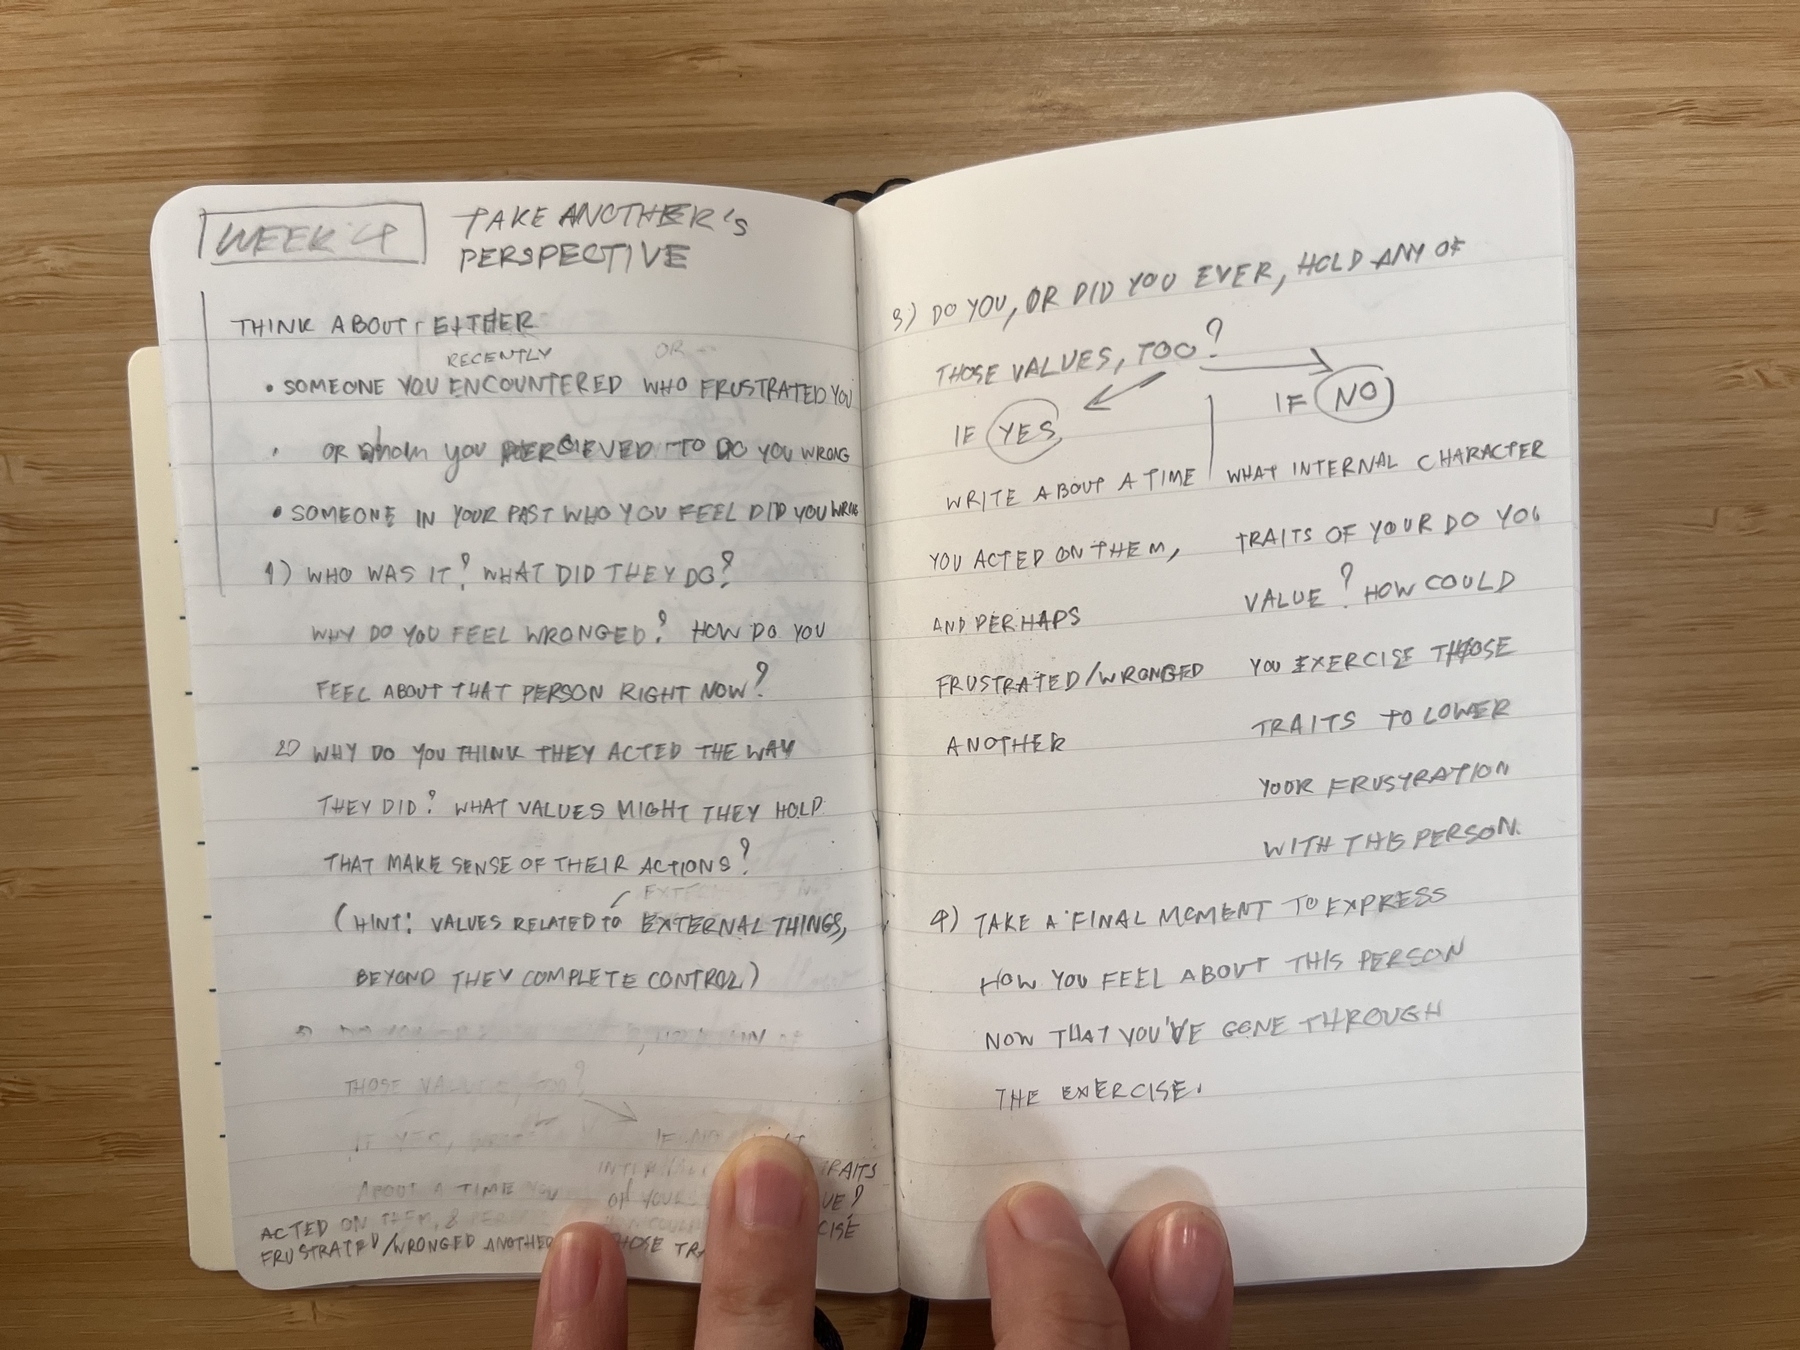 WEEK 4
TAKE ANOTHER'S
PERSPECTIVE
THINK ABOUT EITHER
RECENTLY
OR
• SOMEONE YOU ENCOUNTERED WHO FRUSTRATED YOU
OR whom you PERCIEVED TO DO YOU WRONG
• SOMEONE IN YOUR PAST WHO YOU FEEL DID YOU WRONG
1) WHO WAS IT? WHAT DID THEY DO?
WHY DO YOU FEEL WRONGED? HOW DO YOU
FEEL ABOUT THAT PERSON RIGHT NOW?
2) WHY DO YOU THINK THEY ACTED THE WAY
THEY DID? WHAT VALUES MIGHT THEY HOLD
THAT MAKE SENSE OF THEIR ACTIONS?
(HINT: VALUES RELATED TO EXTERNAL THINGS,
BEYOND THEY COMPLETE CONTROL)
ANY OF
THOSE
IF
ABOUT A TIME
TRAITS
OF YOUR
ACTED ON THEM, &
FRUSTRATED/WRONGED ANOTHER
3) DO YOU, OR DID YOU EVER, HOLD ANY OF
THOSE VALUES, TOO?
IF YES
WRITE ABOUT A TIME
YOU ACTED ON THEM,
AND PERHAPS
FRUSTRATED/WRONGED
ANOTHER
IF NO
WHAT INTERNAL CHARACTER
TRAITS OF YOUR DO YOU
VALUE? HOW COULD
YOU EXERCISE THOSE
TRAITS TO LOWER
YOUR FRUSYRATION
WITH THIS PERSON.
4) TAKE A FINAL MOMENT TO EXPRESS
HOW YOU FEEL ABOUT THIS PERSON
NOW THAT YOU'VE GONE THROUGH
THE EXERCISE.